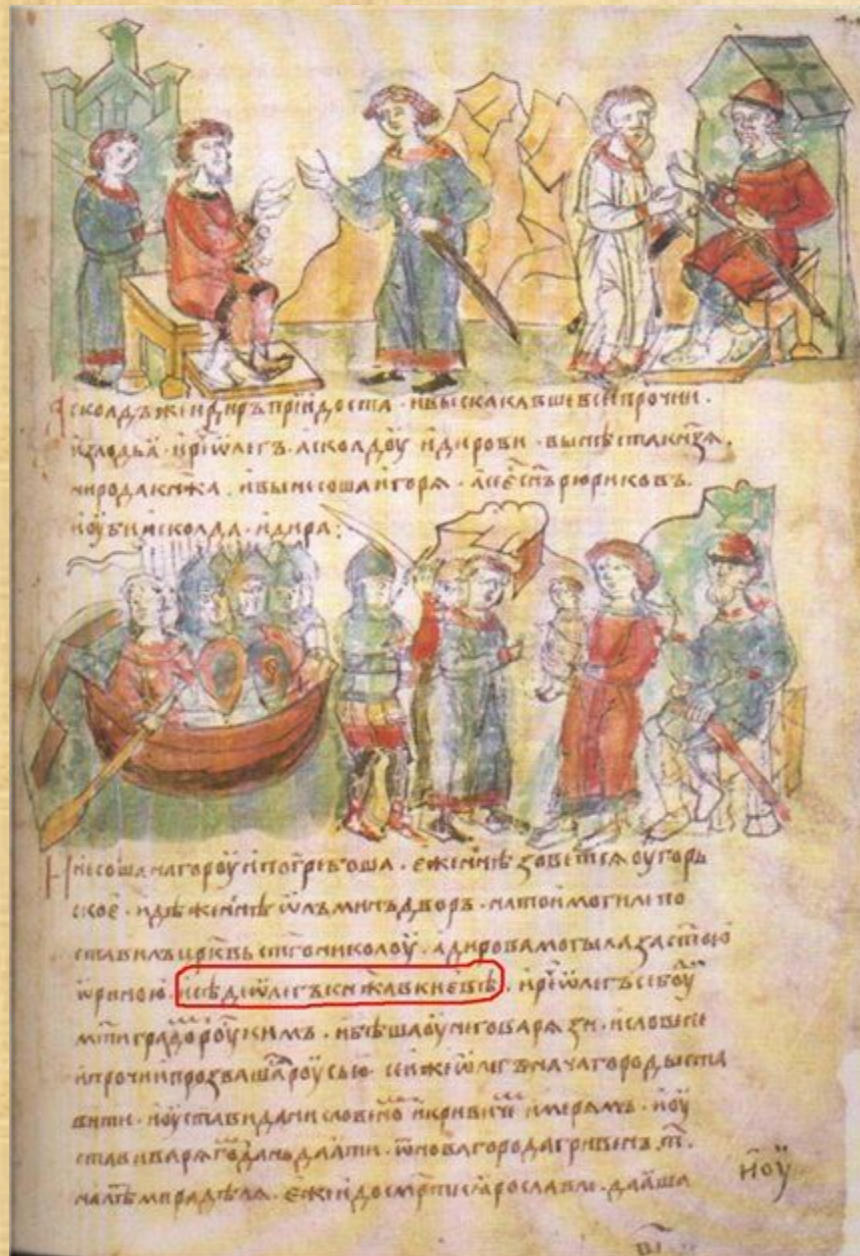 Асколдъ же и диръ придоста · и выскакавше вси прочии ·
излодьꙗ · и рⷱ҇е ѡлегъ · асколдоу и дирови · вы нѣста кнꙁ҃ѧ ·
ни рода кн҃жа · и вынесоша игорѧ · а се єⷭ҇ сн҃ъ рюриковъ ·
и оубиша асколда · и дира :
И несоша на гороу и погребоша · єже нн҃ѣ ꙁоветсѧ оугорь
скоє · идѣже нн҃ѣ ѡлъминъ дворъ · на тои могилѣ по
ставилъ цр҃квь ст҃го николоу · а дирова могыла ꙁа ст҃ою
ѡриною · и сѣде ѡлегъ кнѧжа в києвѣ · и рⷱ҇е ѡлегъ се боуⷣ
мт҃и градо роускимъ · и бѣша оу него варѧꙁи · и словене
и прочии проꙁвашаⷭ҇ роусью · сеи же ѡлегъ нача городы ста
вити · и оустави дани словеноⷨ и кривичеⷨ и мерѧмъ · и оу
стави варѧгоⷨ дань даѧти · ѿ новагорода гривенъ · т҃ ·
на лѣⷮ мира дѣлѧ · єже и до смр҃ти ꙗрославлѧ · даꙗша
и оу